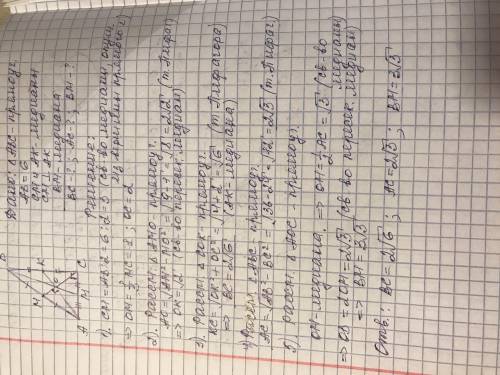 Дано: Δ ABC - прямоуг.
AB = 6
CM и AK - медианы
CM ⊥ AK
BH - медиана
BC - ?; AC - ?; BH - ?
Решение:
1). CM = AB : 2 = 6 : 2 = 3 (св-во медианы, опущ.
из вершины прямого ∠)
⇒ OM = 1/3 MC = 1; OC = 2
2). Рассм. Δ AMO - прямоуг.
AO = √AM² - MO² = √9 - 1 = √8 = 2√2 (т. Пифаг.)
⇒ OK = √2 (св-во пересеч. медиан)
3). Рассм. Δ COK - прямоуг.
KC = √OK² + OC² = √4 + 2 = √6 (т. Пифагора)
⇒ BC = 2√6 (AK - медиана)
4) Рассм. Δ ABC - прямоуг.
AC = √AB² - BC² = √36 - 24 = √12 = 2√3 (т. Пифаг.)
5) Рассм. Δ AOC - прямоуг.
OH - медиана. ⇒ OH = 1/2 AC = √3 (св-во
медианы)
⇒ OB = 2OH = 2√3 (св-во пересек. медиан)
⇒ BH = 3√3
Отв.: BC = 2√6; AC = 2√3; BH = 3√3
B
M
K
O
A
H
C